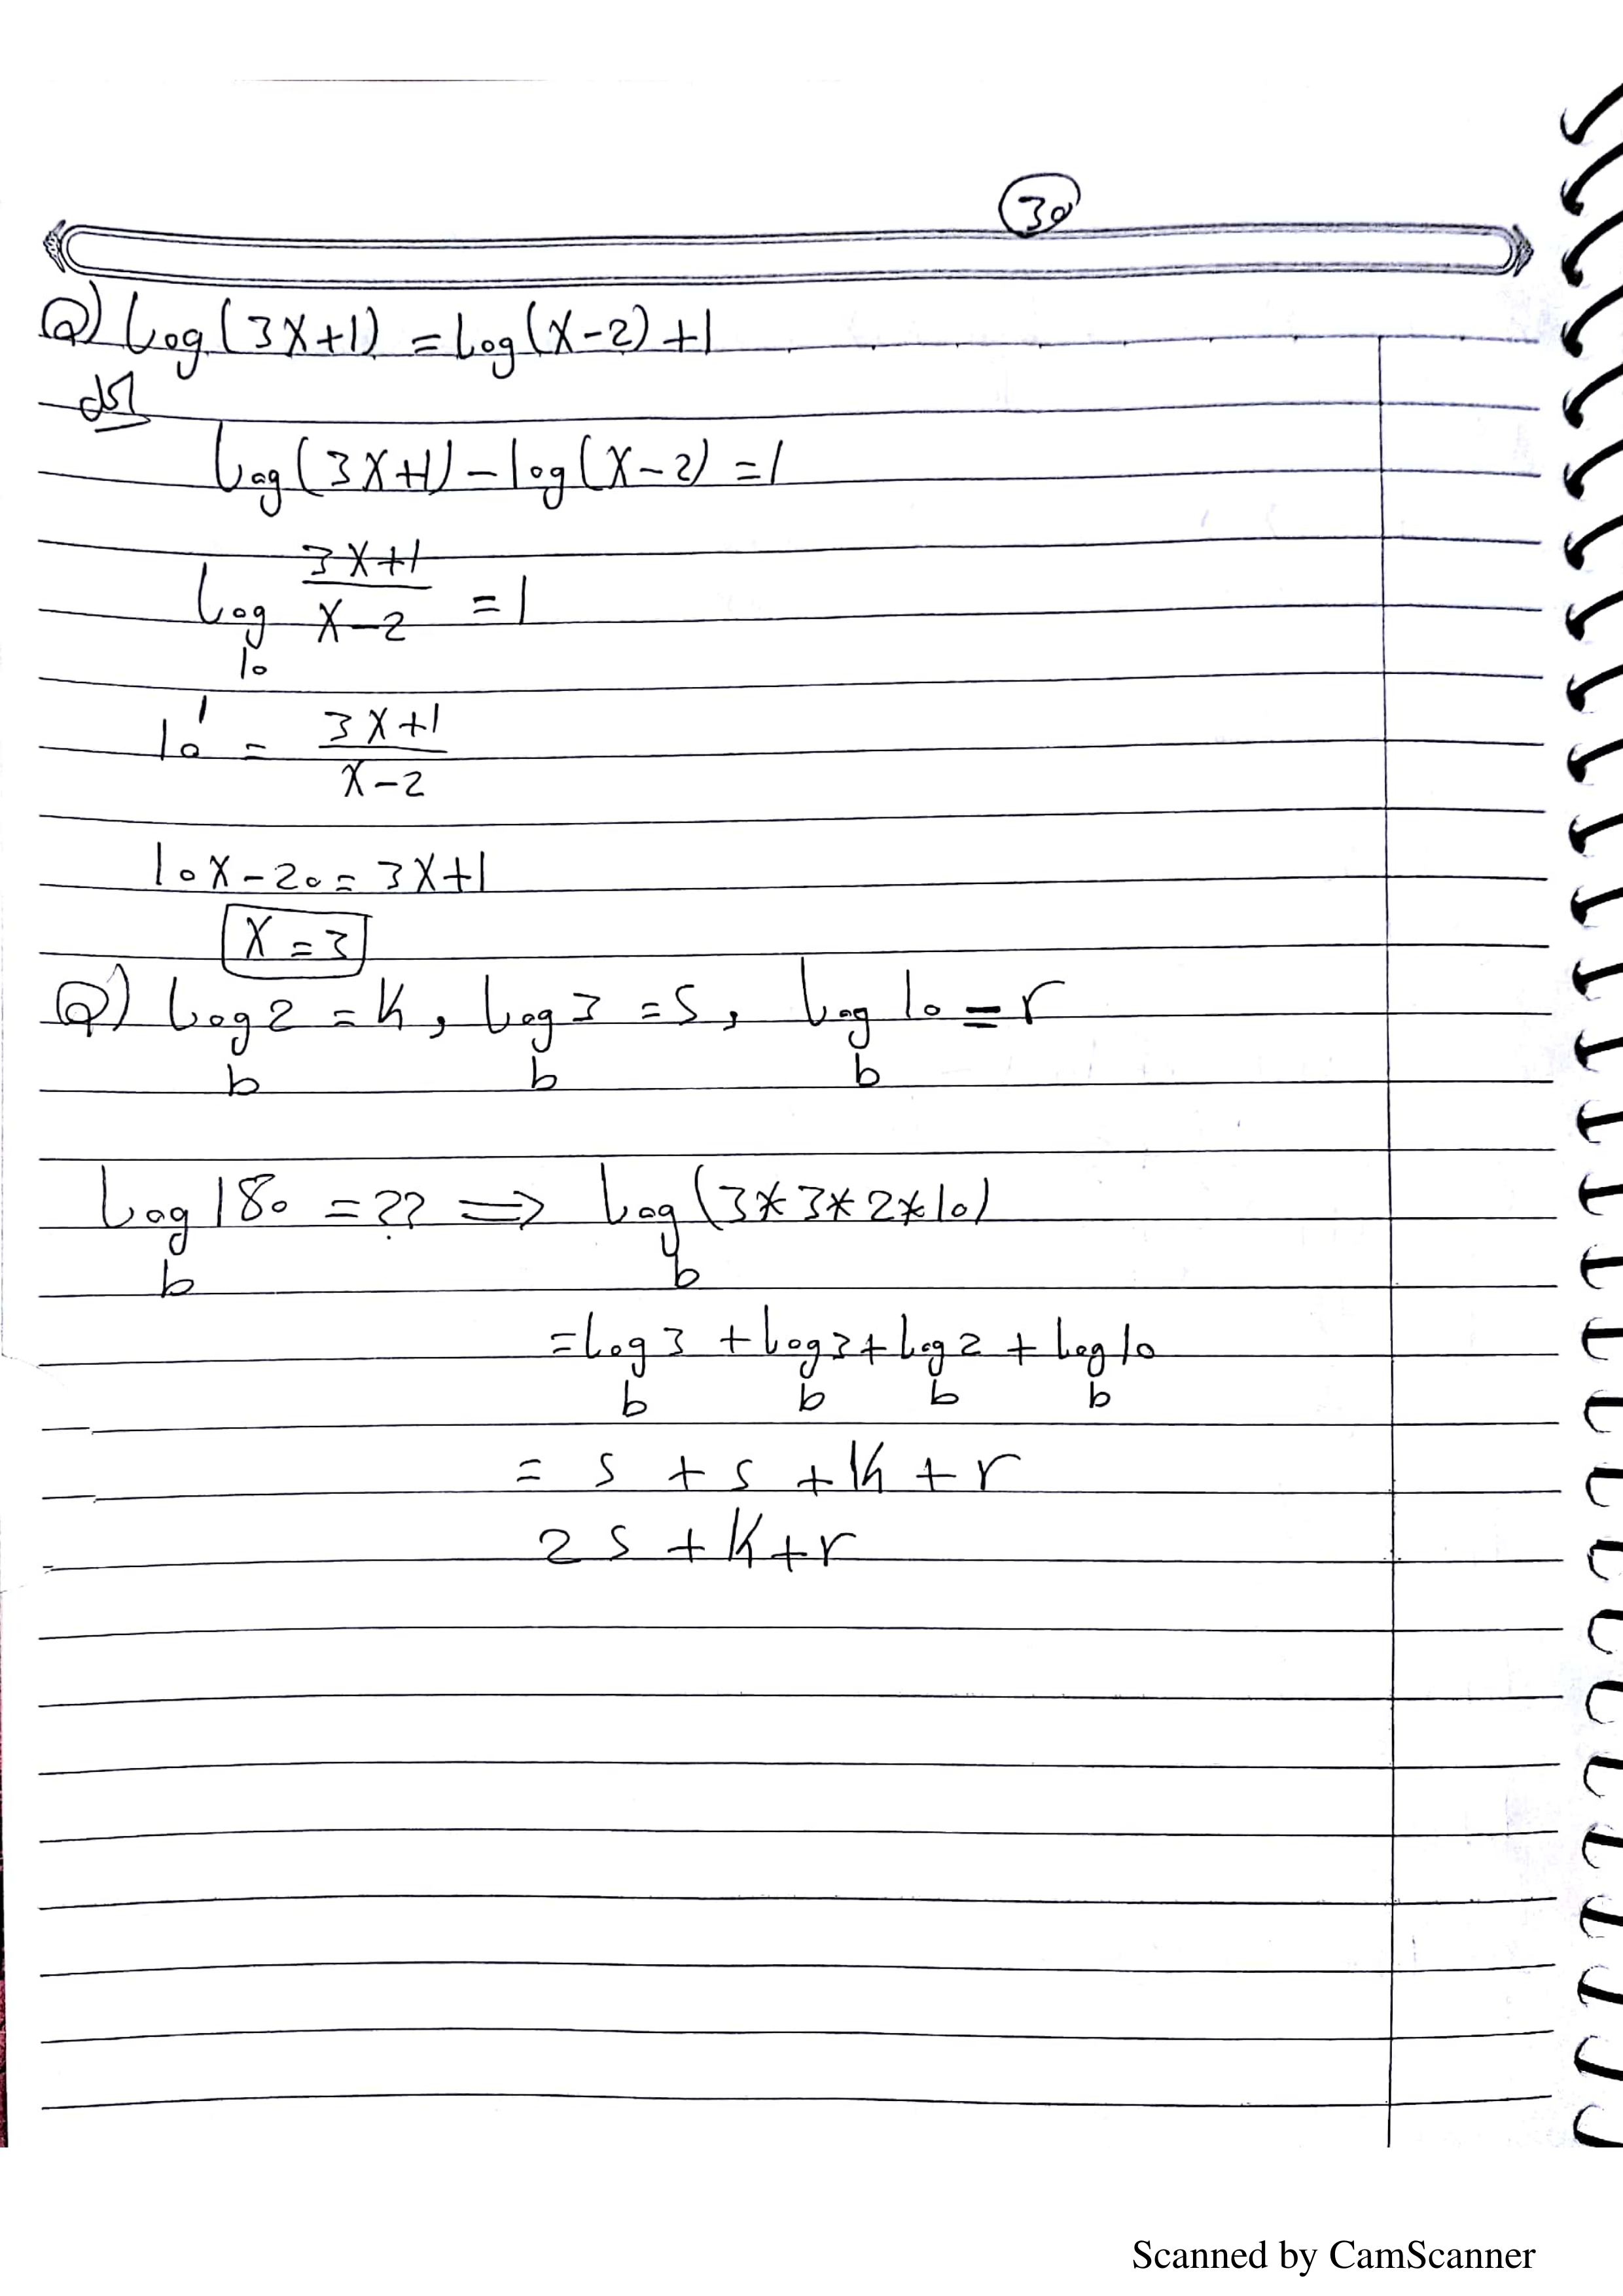 30
Q) Log(3X+1) = Log(X-2)+1
Log(3X+1) - log(X-2) = 1
Log₁₀ (3X+1)/(X-2) = 1
10¹ = (3X+1)/(X-2)
10X-20 = 3X+1
X=3
Q) Log_b 2 = K, Log_b 3 = S, Log_b 10 = r
Log_b 180 = ?? ⇒ Log_b (3*3*2*10)
= Log_b 3 + Log_b 3 + Log_b 2 + Log_b 10
= S + S + K + r
2S + K + r
Scanned by CamScanner